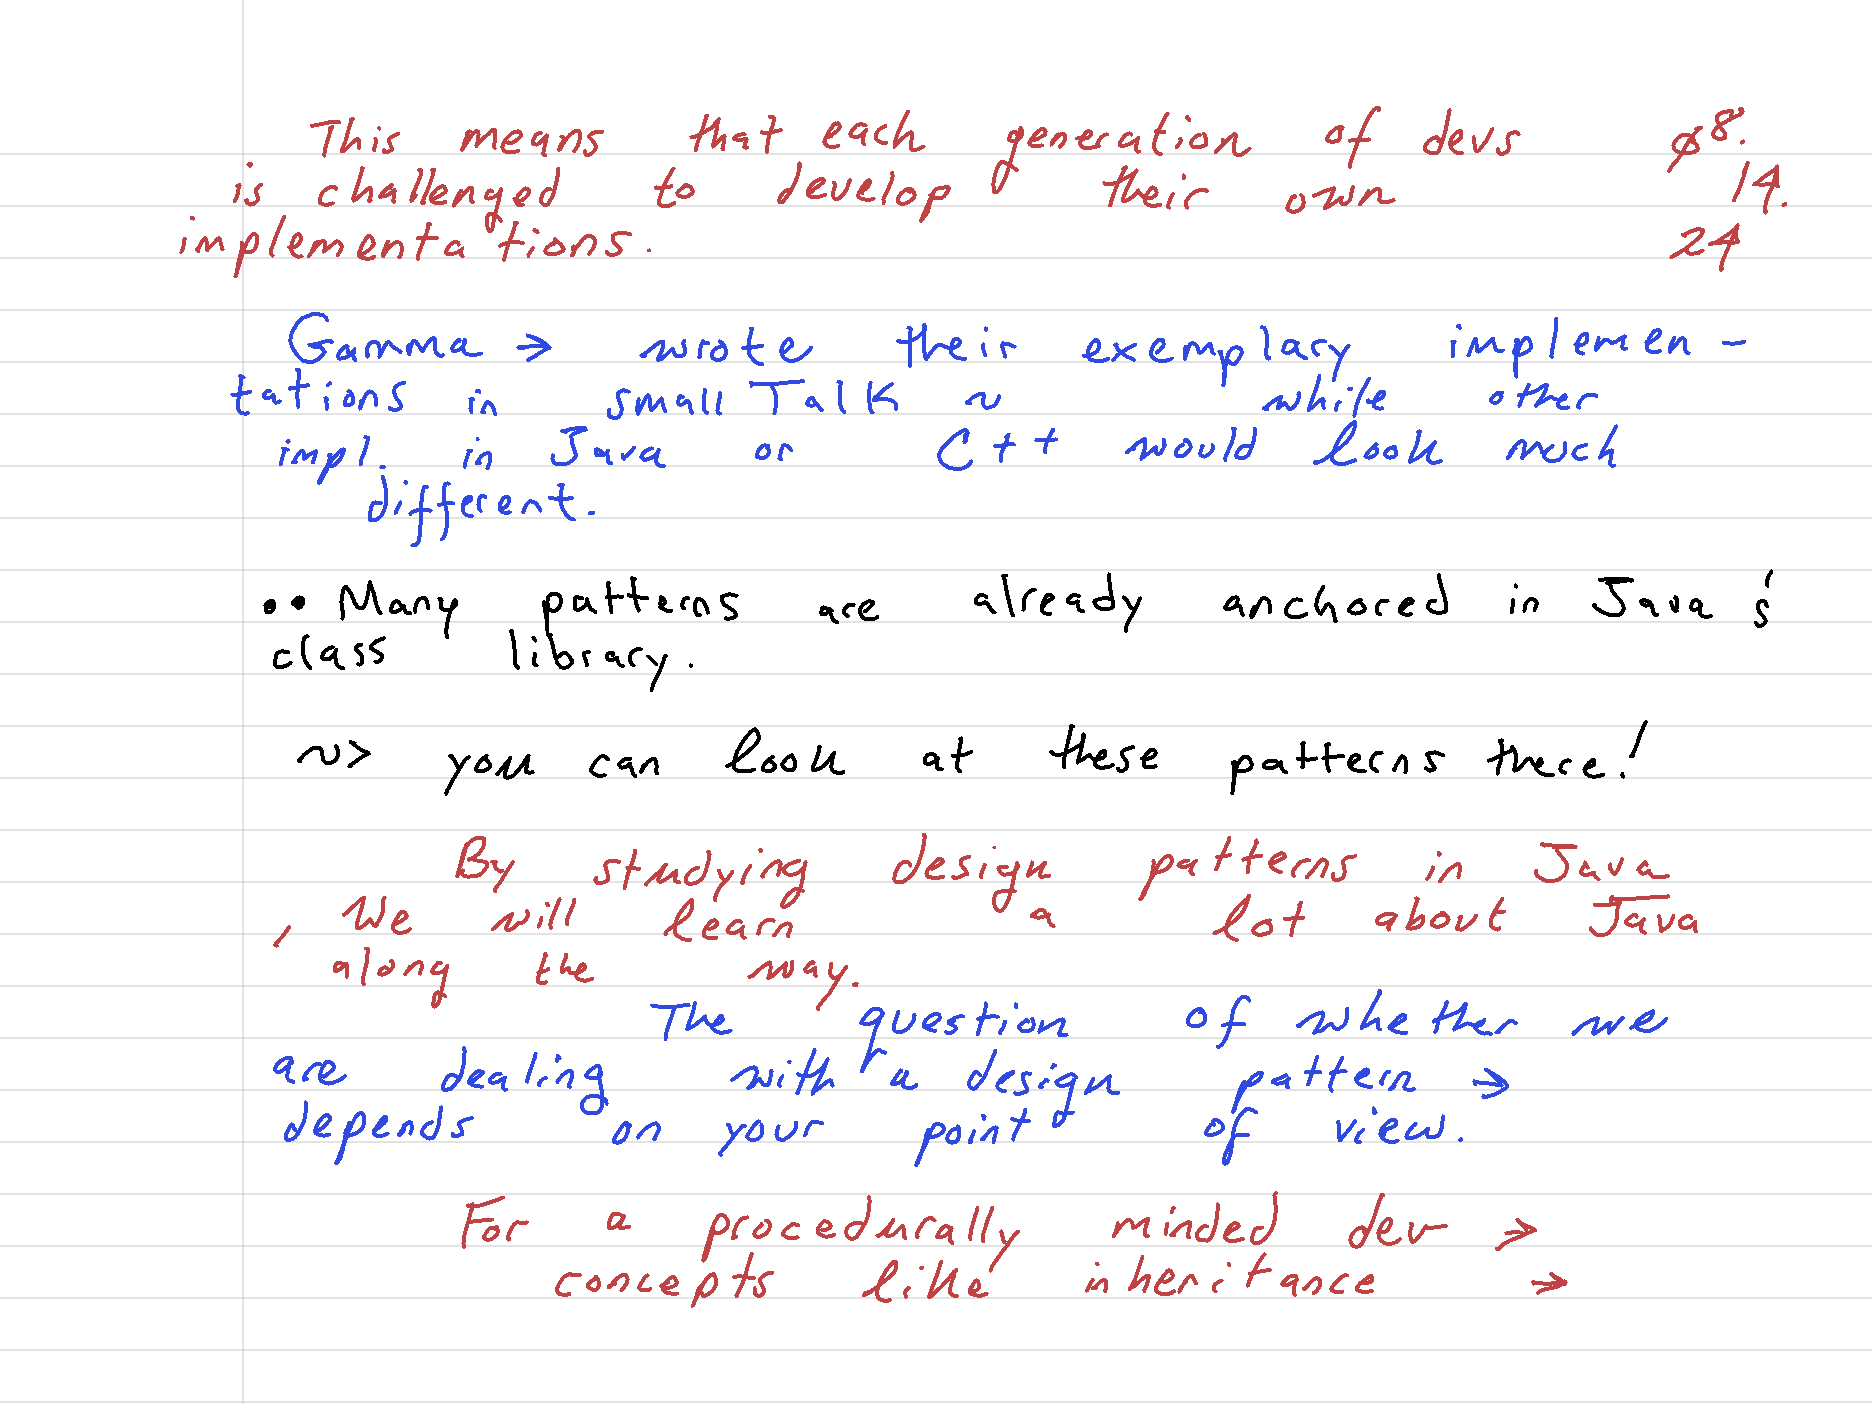 This means that each generation of devs ø8.
is challenged to develop their own 14.
implementations. 24
Gamma → wrote their exemplary implemen-
tations in smallTalk ~ while other
impl. in Java or C++ would look much
different.
•• Many patterns are already anchored in Java's
class library.
~> you can look at these patterns there!
By studying design patterns in Java
, We will learn a lot about Java
along the way.
The question of whether we
are dealing with a design pattern →
depends on your point of view.
For a procedurally minded dev →
concepts like inheritance →